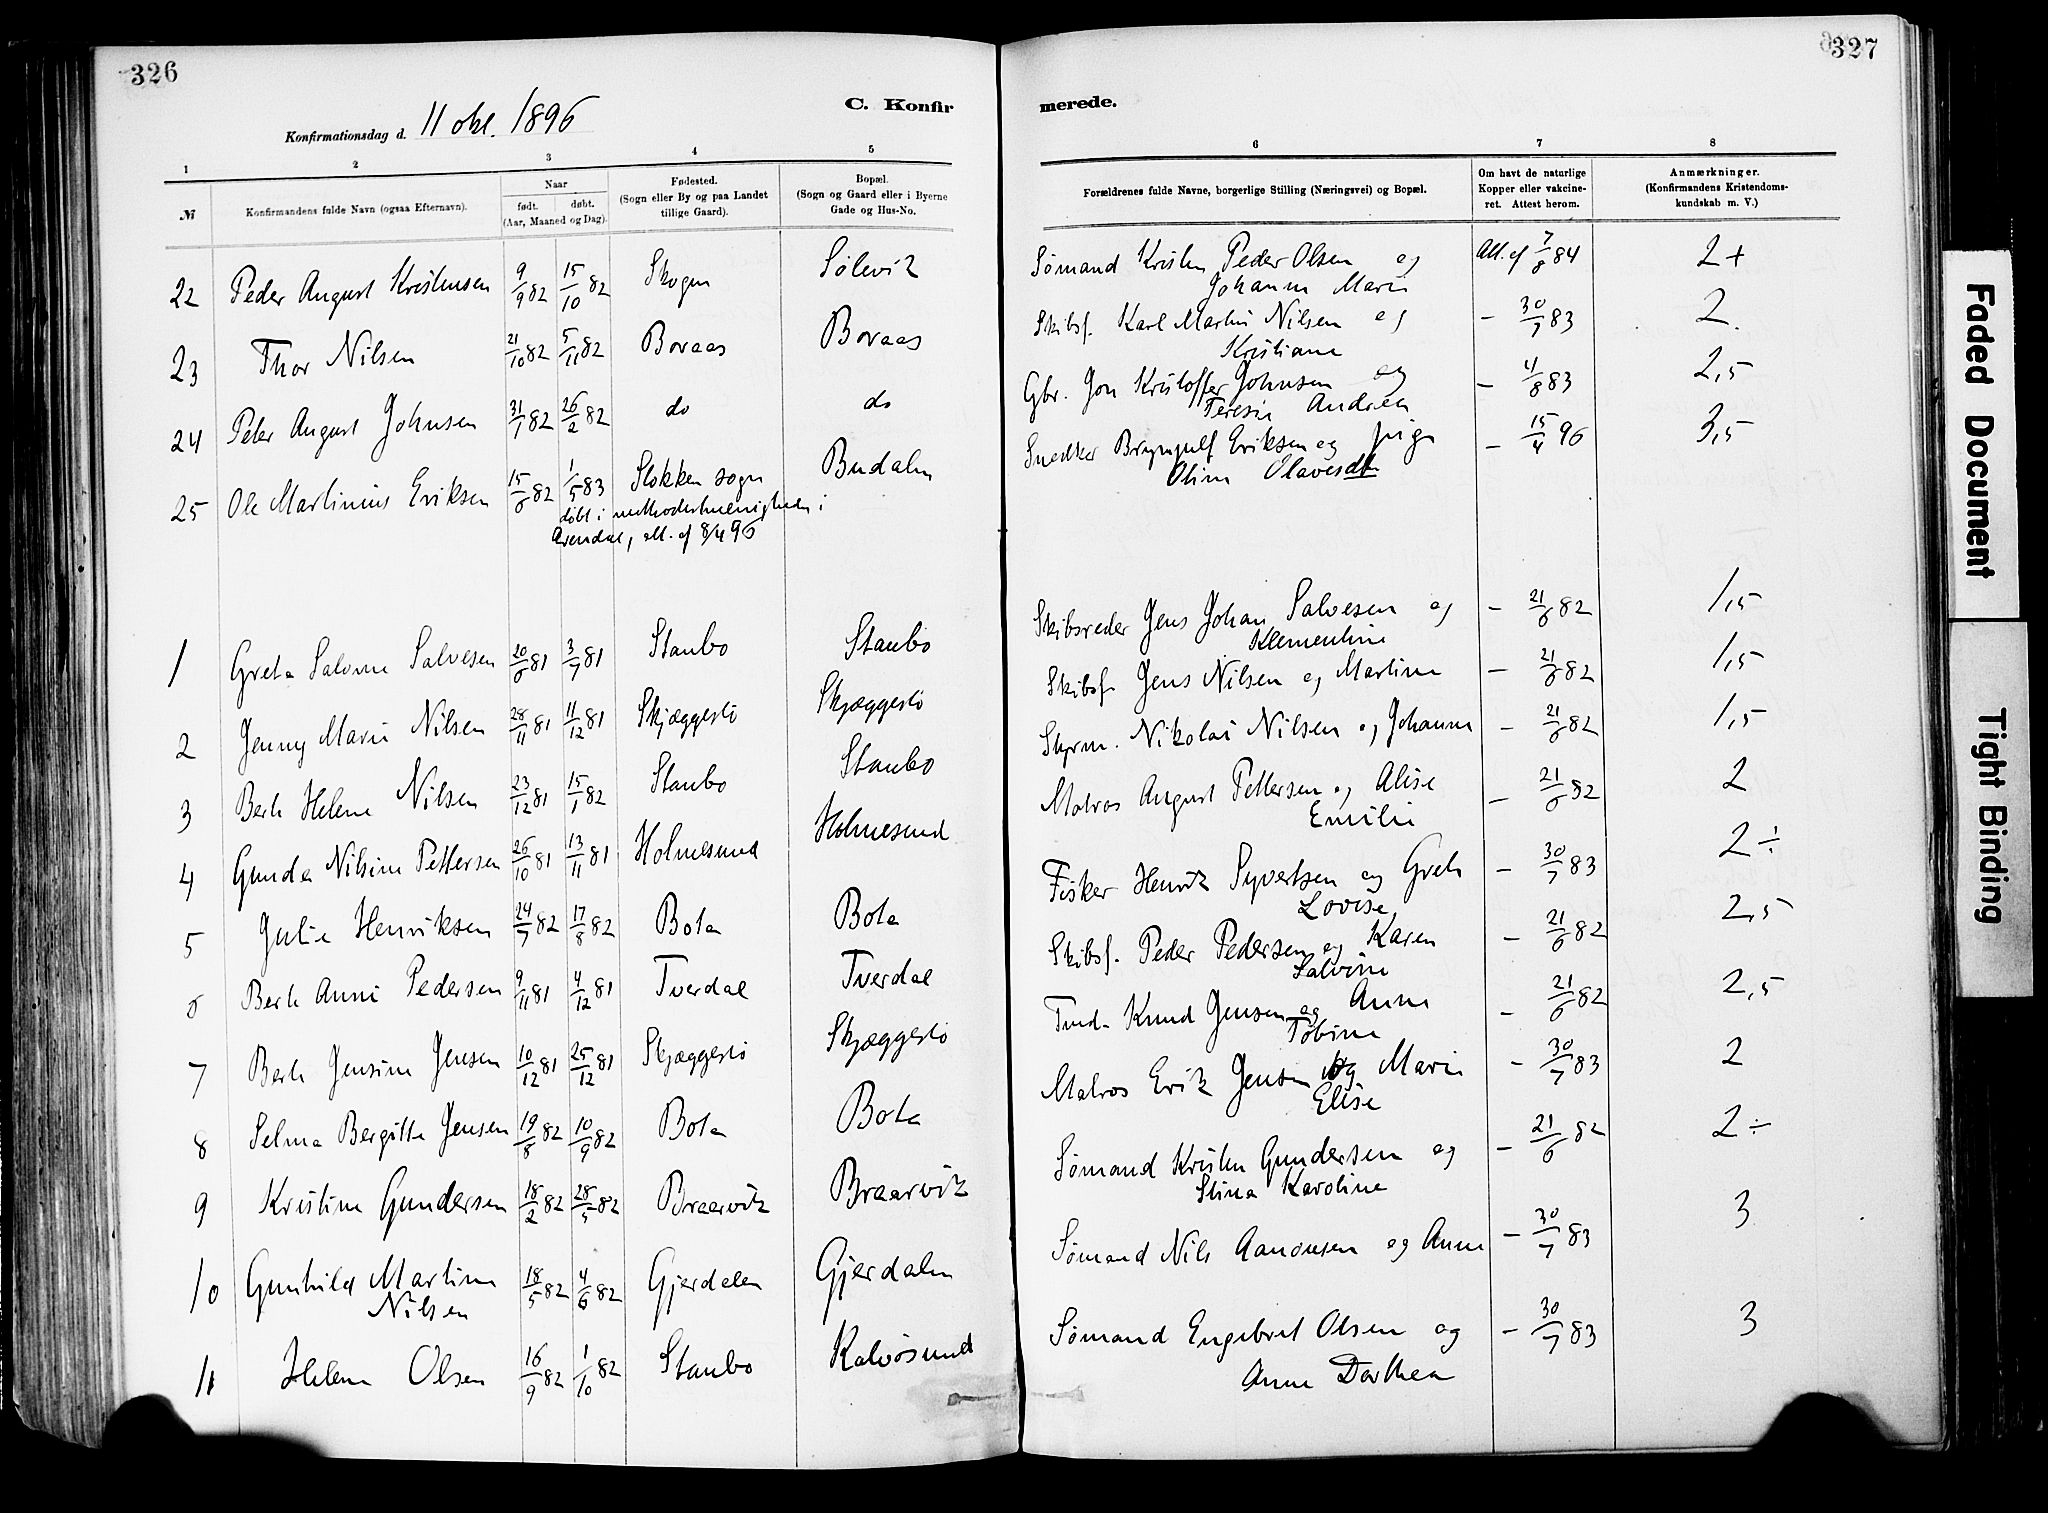 326
C. Konfir
Konfirmationsdag d. 11 okt. 1896
1 2 3 4 5
№ Konfirmandens fulde Navn (ogsaa Efternavn). Naar født. døbt. (Aar, Maaned og Dag). Fødested. (Sogn eller By og paa Landet tillige Gaard). Bopæl. (Sogn og Gaard eller i Byerne Gade og Hus-No.
22 Peder August Kristensen 9/9 82 15/10 82 Skogen Sølevik
23 Thor Nilsen 21/10 82 5/11 82 Boraas Boraas
24 Peter August Johnsen 31/1 82 26/2 82 do do
25 Ole Martinius Eriksen 15/6 82 1/5 83 Stokken sogn Budalen
døbt i methodistmenigheden i
Arendal, att. af 8/4 96
1 Grete Salvine Salvesen 20/6 81 3/7 81 Staubo Staubo
2 Jenny Marie Nilsen 28/11 81 11/12 81 Skjæggestø Skjæggestø
3 Berte Helene Nilsen 23/12 81 15/1 82 Staubo Staubo
4 Gunda Nilsine Pettersen 26/10 81 13/11 81 Holmesund Holmesund
5 Julie Henriksen 24/7 82 17/8 82 Bota Bota
6 Berte Annie Pedersen 9/11 81 4/12 81 Tverdal Tverdal
7 Berte Jensine Jensen 10/12 81 25/12 81 Skjæggestø Skjæggestø
8 Selma Bergitte Jensen 19/8 82 10/9 82 Bota Bota
9 Kristine Gundersen 18/2 82 28/5 82 Braarvik Braarvik
10 Gunhild Martine 18/5 82 4/6 82 Gjerdalen Gjerdalen
Nilsen
11 Helene Olsen 16/9 82 1/10 82 Staubo Kalvøsund
327
merede.
6 7 8
Forældrenes fulde Navne, borgerlige Stilling (Næringsvei) og Bopæl. Om havt de naturlige Kopper eller vakcineret. Attest herom. Anmærkninger. (Konfirmandens Kristendomskundskab m. V.)
Sømand Kristen Peder Olsen og Att. af 7/8 84 2+
Johanne Marie
Skibsf. Karl Martin Nilsen og - 30/7 83 2.
Kristiane
Gbr. Jon Kristoffer Johnsen og - 4/8 83 2,5
Teresie Andrea
Snedker Brynjulf Eriksen og pige - 15/4 96 3,5
Oline Olavesdtr
Skibsreder Jens Johan Salvesen og - 21/6 82 1,5
Klementine
Skibsf. Jens Nilsen og Martine - 21/6 82 1,5
Styrm. Nikolai Nilsen og Johanne - 21/6 82 1,5
Matros August Pettersen og Alise - 21/6 82 2
Emilie
Fisker Henrik Syvertsen og Grete - 30/7 83 2÷
Lovise
Skibsf. Peder Pedersen og Karen - 21/6 82 2,5
Salvine
Knud Jensen og Anne - 21/6 82 2,5
Tobine
Matros Erik Jensen og Marie - 30/7 83 2
Elise
Sømand Kristen Gundersen og - 21/6 82 2÷
Stina Karoline
Sømand Nils Aanonsen og Anne - 30/7 83 3
Sømand Engebret Olsen og - 30/7 83 3
Anne Dorthea
Faded Document
Tight Binding